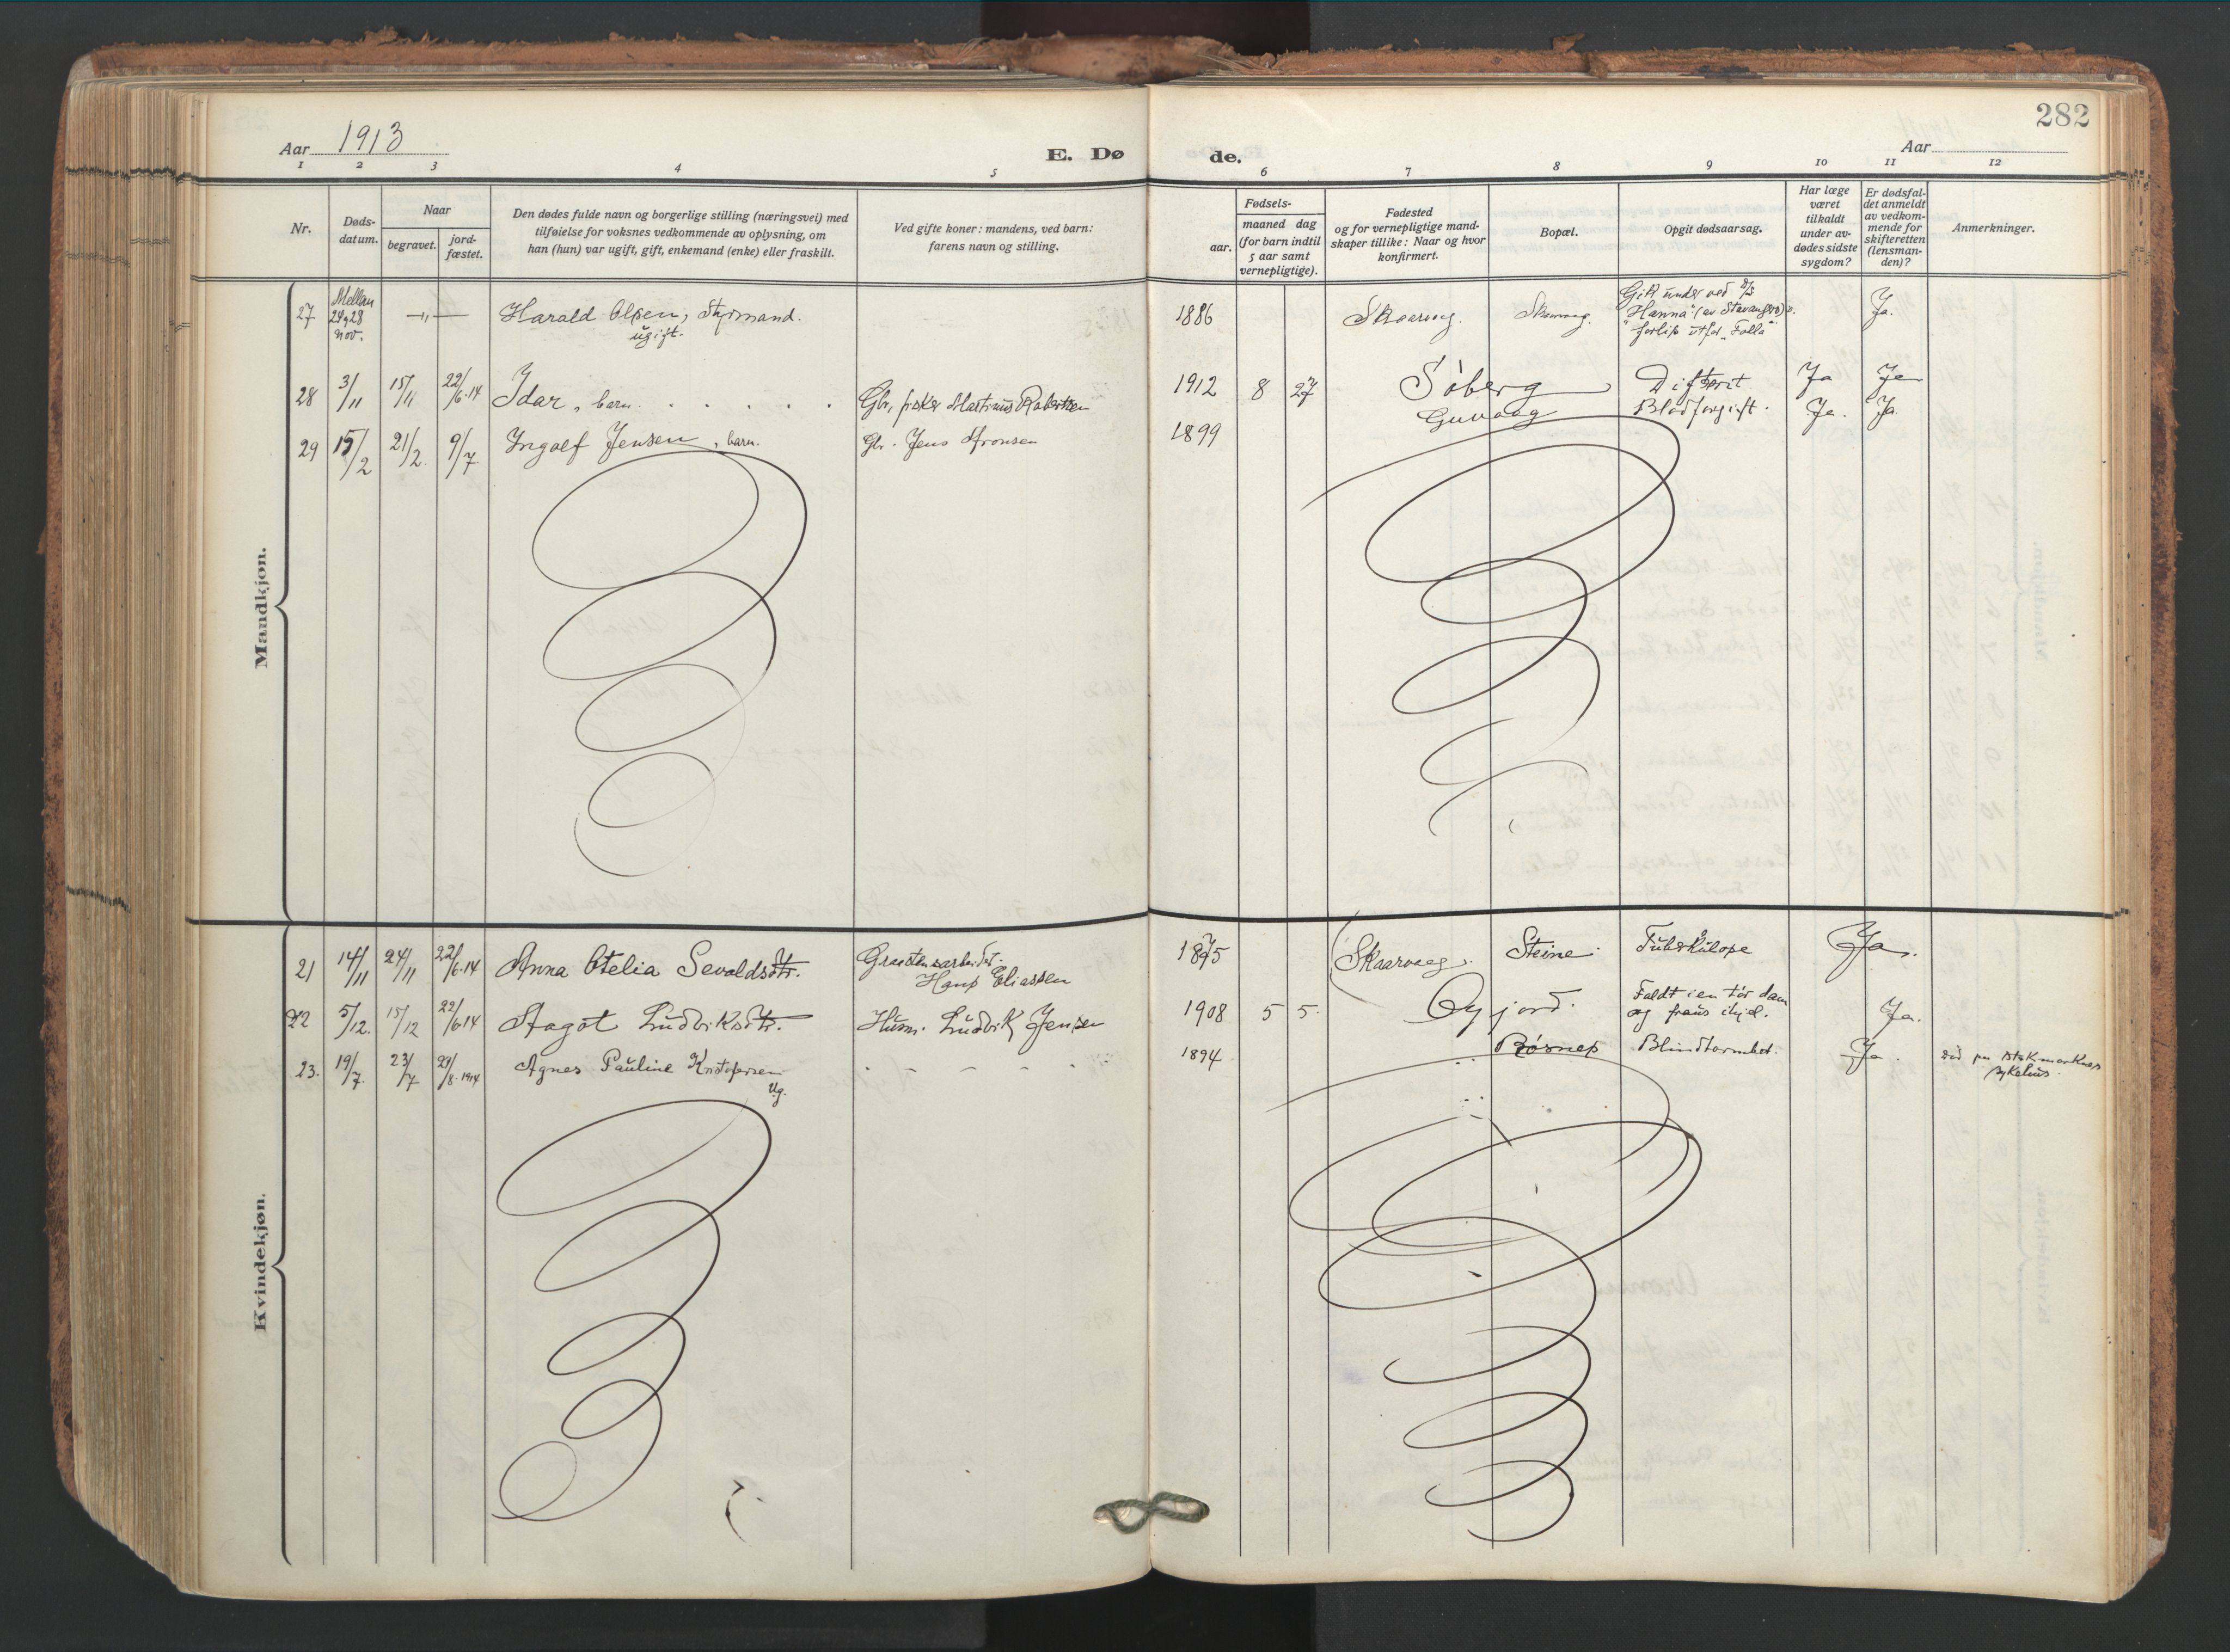 282
Aar 1913
E. Dø
de.
Aar
1 2 3 4 5 6 7 8 9 10 11 12
Nr.
Døds-
datum.
Naar
begravet.
jord-
fæstet.
Den dødes fulde navn og borgerlige stilling (næringsvei) med
tilføielse for voksnes vedkommende av oplysning, om
han (hun) var ugift, gift, enkemand (enke) eller fraskilt.
Ved gifte koner: mandens, ved barn:
farens navn og stilling.
Fødsels-
aar.
maaned dag
(for barn indtil
5 aar samt
vernepligtige).
Fødested
og for vernepligtige mand-
skaper tillike: Naar og hvor
konfirmert.
Bopæl.
Opgit dødsaarsag.
Har læge
været
tilkaldt
under av-
dødes sidste
sygdom?
Er dødsfal-
det anmeldt
av vedkom-
mende for
skifteretten
(lensman-
den)?
Anmerkninger.
Mandkjøn.
27 Mellem
nov. —"— Harald Olsen, Styrmand.
ugift.
1886 Skaarvaag. Skaarvaag. Gik under ved
"Hanna" (av Stavanger)s
forlis utfor "Folla". Ja.
28 3/11 15/11 22/6.14 Idar, barn. . . . . . Gbr, fisker Martinus Robertsen 1912 8 27 Søberg Difterit Ja Ja
29 15/2 21/2. 9/7 Ingolf Jensen, barn. Gbr. Jens Aronsen 1899 Guvaag Blodforgift. Ja. Ja.
Kvindekjøn.
21 14/11 24/11 22/6.14 Anna Otelia Sevaldsdtr. Hans Eliassen 1875 Skaarvaag. Steine. Tuberkulose Ja.
22 5/12. 15/12 22/6.14 Aagot Ludviksdtr. Husm. Ludvik Jensen 1908 5 5. Faldt i en tør dam
og fraus ihjel. Ja.
23. 19/7. 23/7 29/8.1914 Agnes Pauline Kristofersen
Ug.
1894 Røsnes Blindtarmbet. Ja. Død paa Stokmarknes
sykehus.